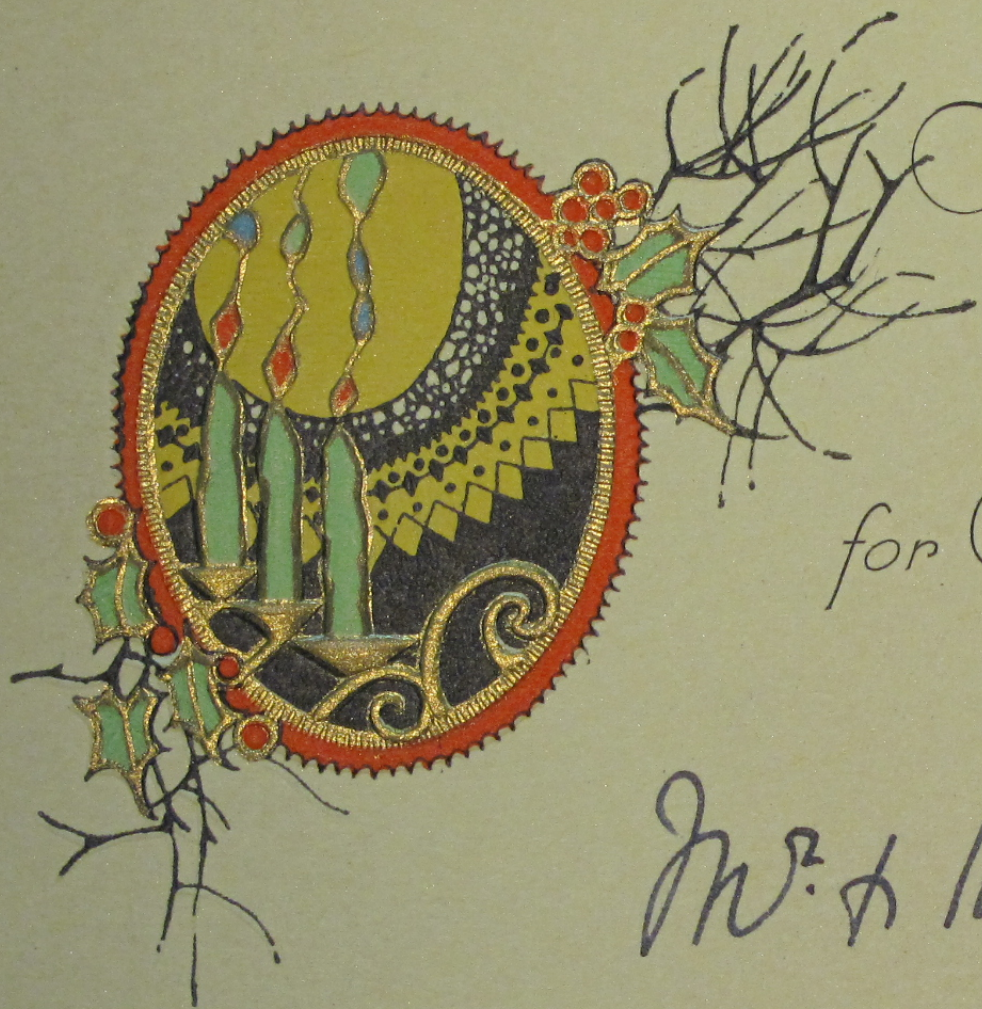 for
Mr. &